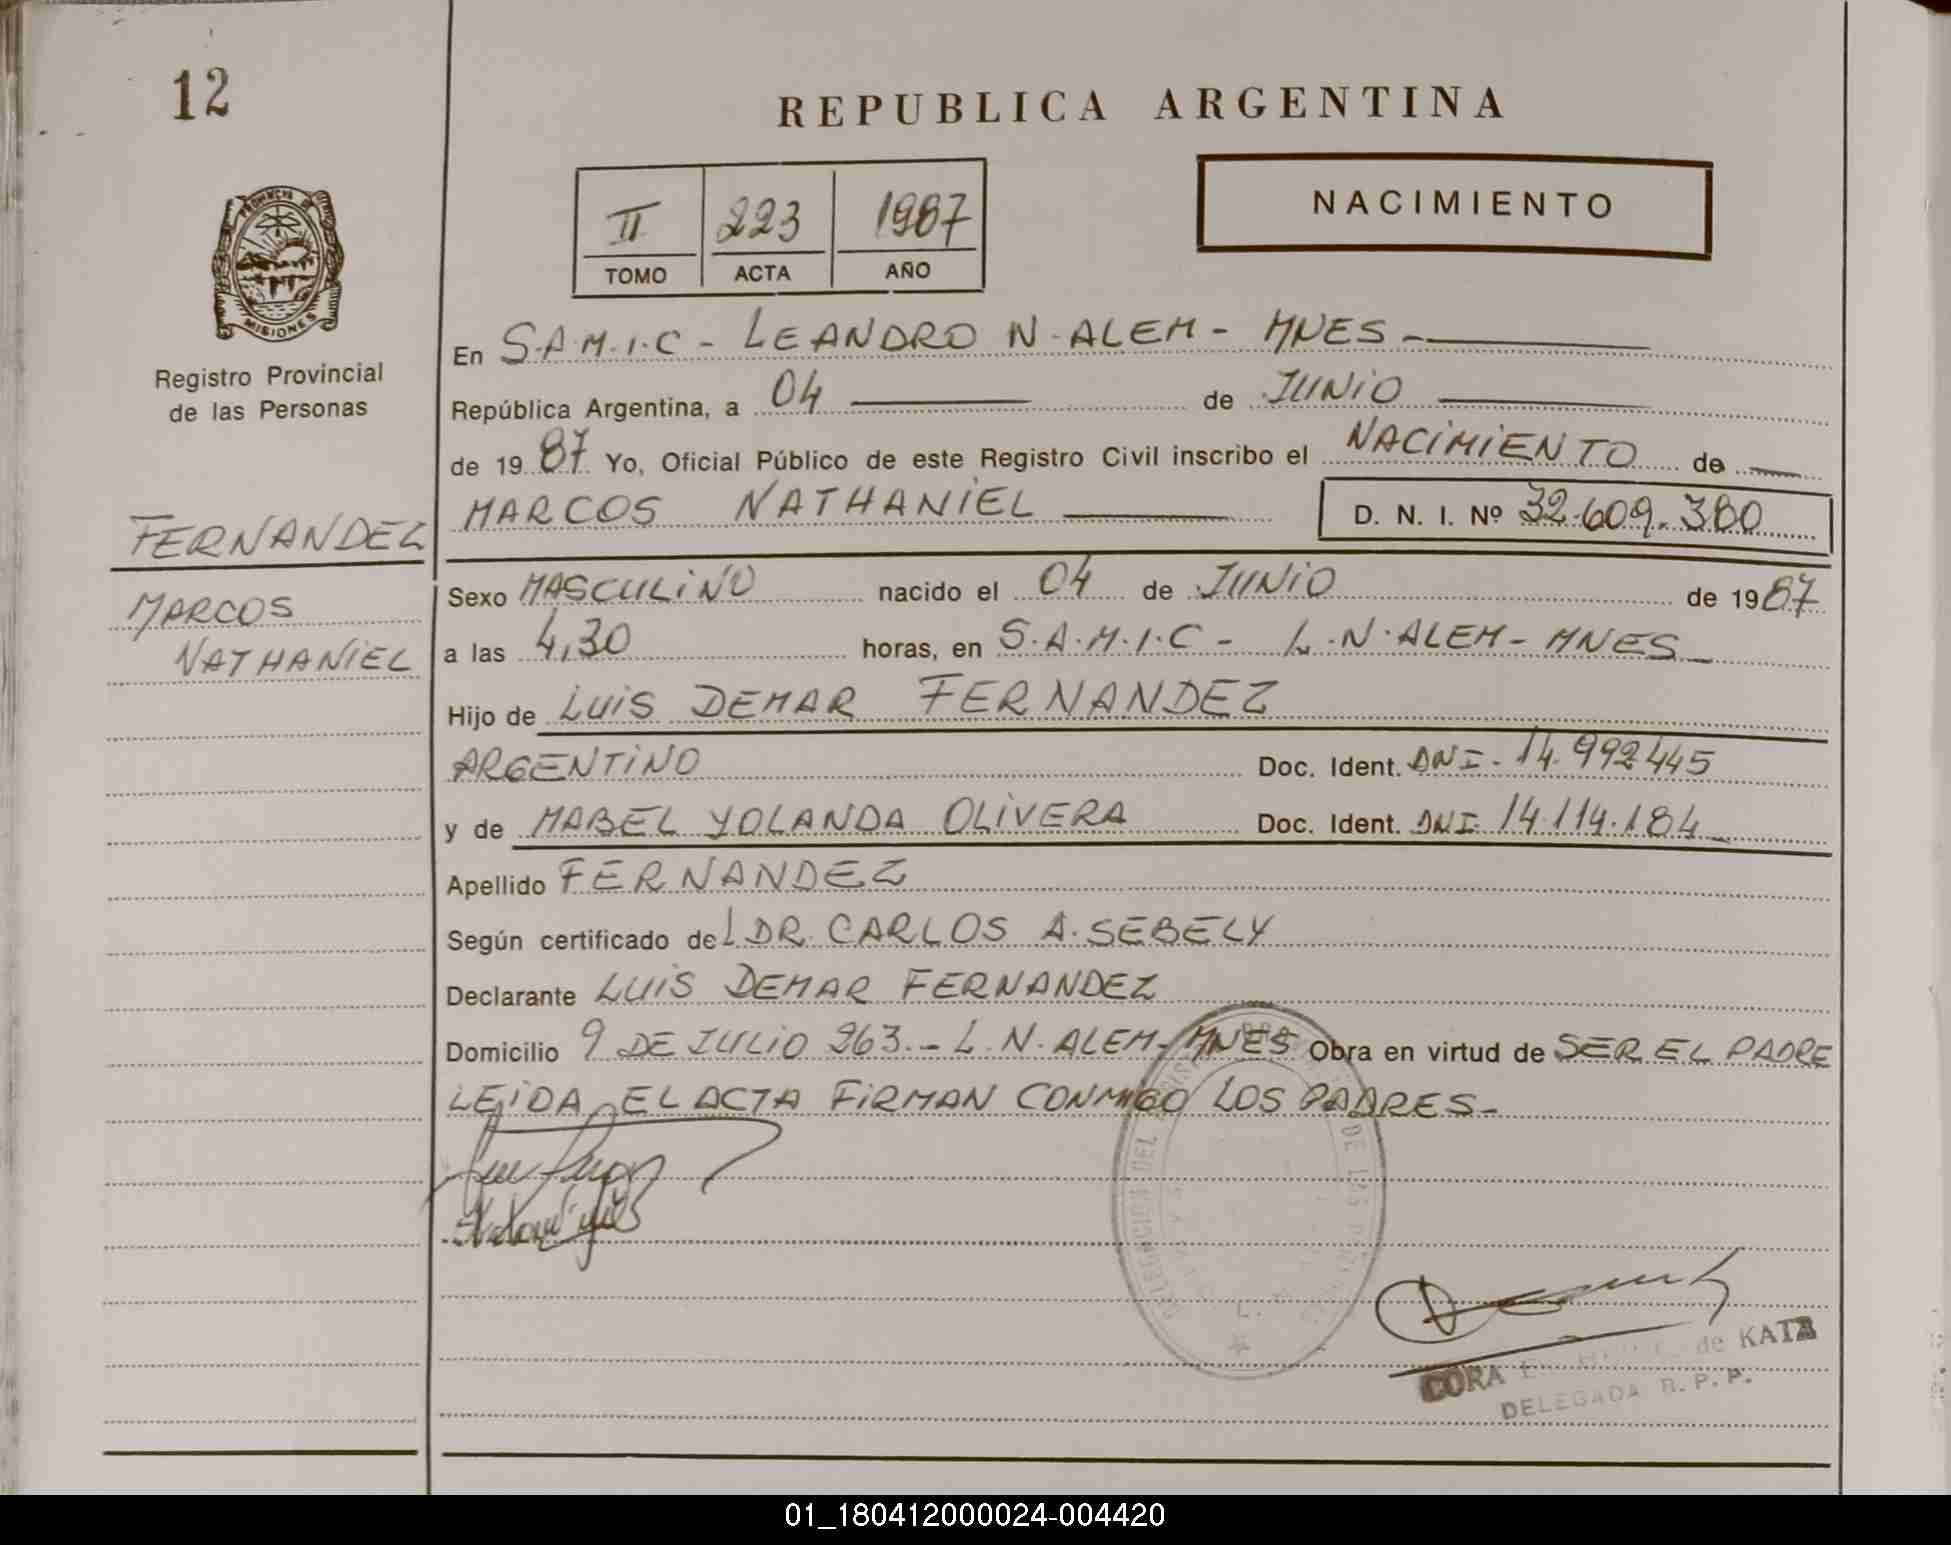 12
REPUBLICA ARGENTINA
II 223 1987
TOMO ACTA AÑO
NACIMIENTO
PROVINCIA DE
MISIONES
Registro Provincial
de las Personas
FERNANDEZ
MARCOS
NATHANIEL
En S.A.M.I.C - LEANDRO N. ALEM - MNES -
República Argentina, a 04 de JUNIO
de 1987 Yo, Oficial Público de este Registro Civil inscribo el NACIMIENTO de
MARCOS NATHANIEL D. N. I. Nº 32.609.380
Sexo MASCULINO nacido el 04 de JUNIO de 1987
a las 4,30 horas, en S.A.M.I.C - L.N.ALEM - MNES
Hijo de LUIS DEMAR FERNANDEZ
ARGENTINO Doc. Ident. DNI. 14.992445
y de MABEL YOLANDA OLIVERA Doc. Ident. DNI. 14.114.184
Apellido FERNANDEZ
Según certificado del DR. CARLOS A. SEBELY
Declarante LUIS DEMAR FERNANDEZ
Domicilio 9 DE JULIO 263 - L. N. ALEM - MNES Obra en virtud de SER EL PADRE
LEIDA EL ACTA FIRMAN CONMIGO LOS PADRES -
CORA de KATZ
DELEGADA R. P. P.
01_180412000024-004420